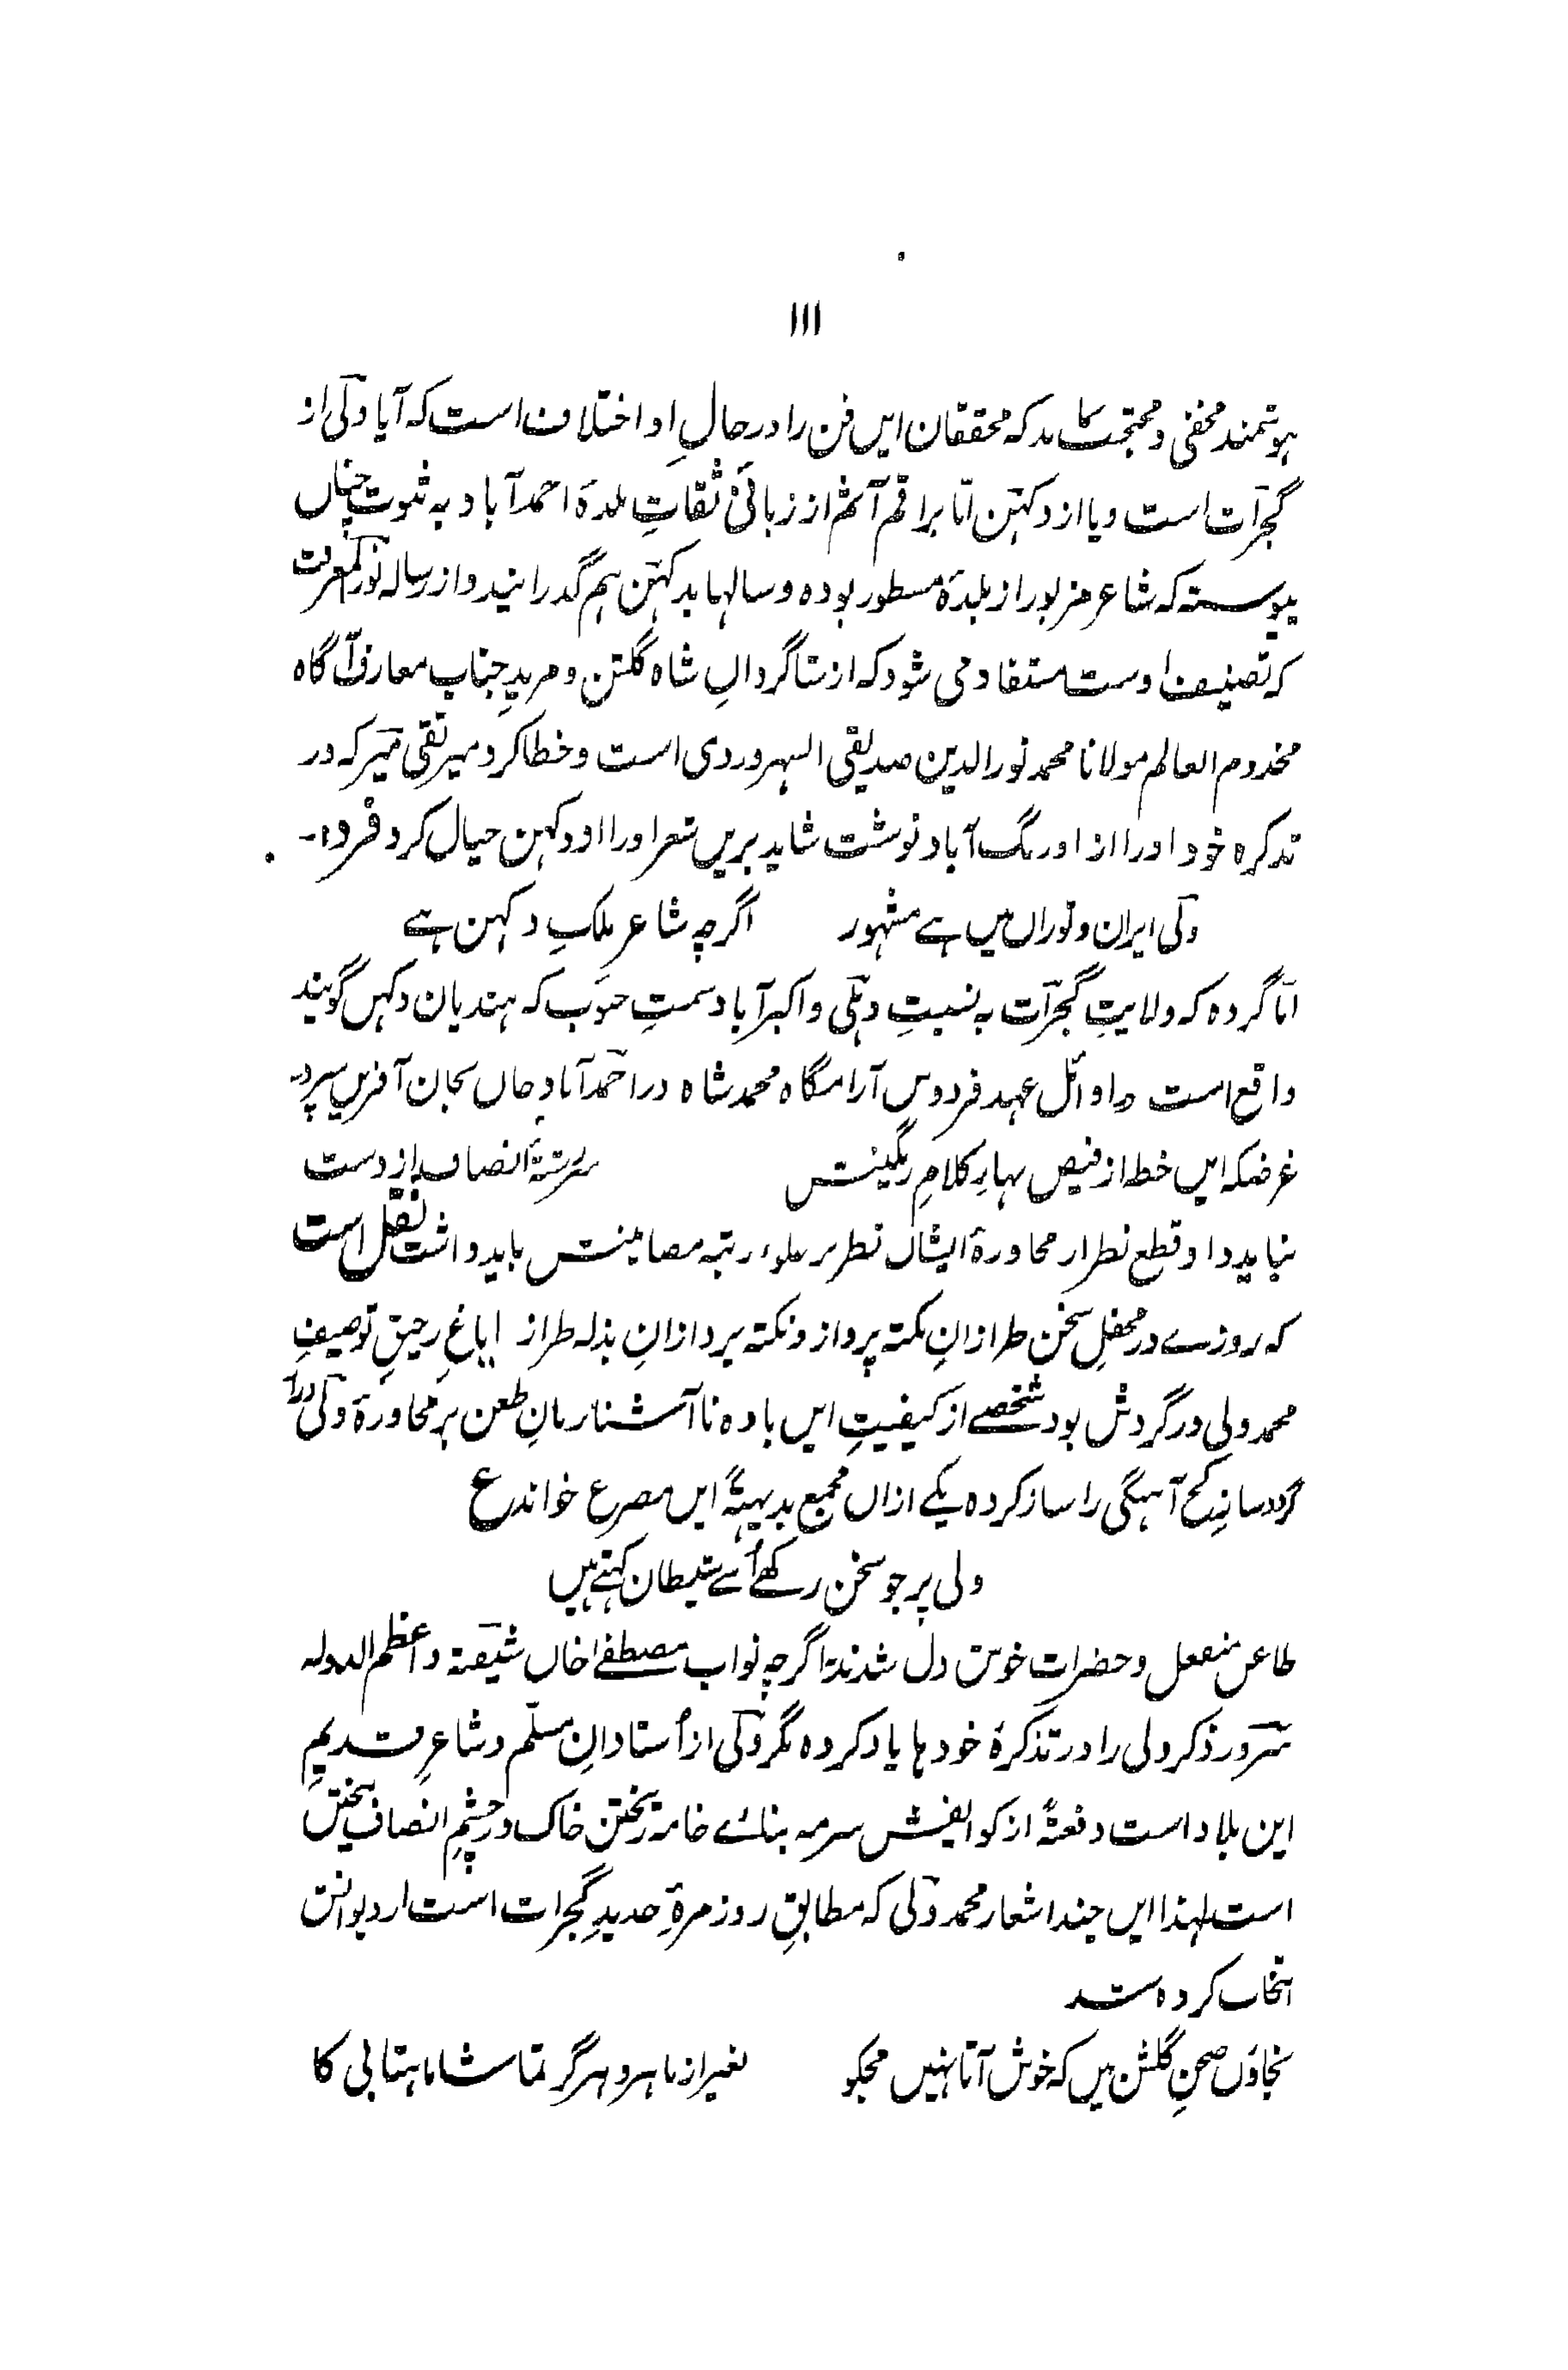 ۱۱۱
ہوشمند مخفی و محتجب نماند کہ محققان ایں فن را در حالِ او اختلاف است کہ آیا ولی از
گجرات است و یا از دکہن امّا براقم آثم از زبانیٔ ثقاتِ بلدۂ احمدآباد بہ ثبوت چناں
پیوستہ کہ شاعر مزبور از بلدۂ مسطور بودہ و سالہا بدکہن ہم گذرانید و از رسالہ نورالمعرفت
کہ تصنیف اوست مستفاد می شود کہ از شاگردانِ شاہ گلشن و مریدِ جنابِ معارف آگاہ
مخدوم العالم مولانا محمد نورالدین صدیقی السہروردی است و خطا کرد میر تقی میر کہ در
تذکرہ خود او را از اورنگ آباد نوشت شاید بریں شعر او را از دکہن خیال کرد فرد ۱۔
ولی ایران و توراں میں ہے مشہور اگرچہ شاعر ملکِ دکہن ہے
امّا گردہ کہ ولایتِ گجرات بہ نسبتِ دہلی و اکبرآباد سمتِ جنوب کہ ہندیان دکہن گویند
واقع است در اوائل عہد فردوس آرامگاہ محمد شاہ در احمدآباد جاں بجان آفریں سپرد۔
غرضکہ ایں خط از فیض بہارِ کلامِ رنگینش سررشتۂ انصاف از دست
نباید داد و قطع نظر از محاورۂ ایشاں نظر بر علوء رتبہ مضامینش باید داشت نقل است
کہ روزے در محفلِ سخن طرازانِ نکتہ پرداز و نکتہ پردازانِ بذلہ طراز ایاغِ رحیقِ توصیفِ
محمد ولی در گردش بود شخصے از کیفیتِ ایں بادہ ناآشنا زبانِ طعن بر محاورۂ ولی درا
کج آہنگی را ساز کردہ یکے ازاں مجمع بدیہۃً ایں مصرع خواند ع
ولی پر جو سخن رکھے اُسے شیطان کہتے ہیں
طاعن منفعل و حضرات خوش دل شدند اگرچہ نواب مصطفےٰ خاں شیفتہ و اعظم الدولہ
سرور ذکر ولی را در تذکرۂ خودہا یاد کردہ مگر ولی از اُستادانِ مسلّم و شاعرِ قدیمِ
این بلاد است دفعۃً از کوائفش سرمہ بنائے خامہ ریختن خاک در چشمِ انصاف بیختن
است لہذا ایں چند اشعار محمد ولی کہ مطابقِ روزمرۂ جدیدِ گجرات است از دیوانش
انتخاب کردہ شد
نجاؤں صحنِ گلشن میں کہ خوش آتا نہیں مجکو بغیر از ماہرو ہرگز تماشا ماہتابی کا